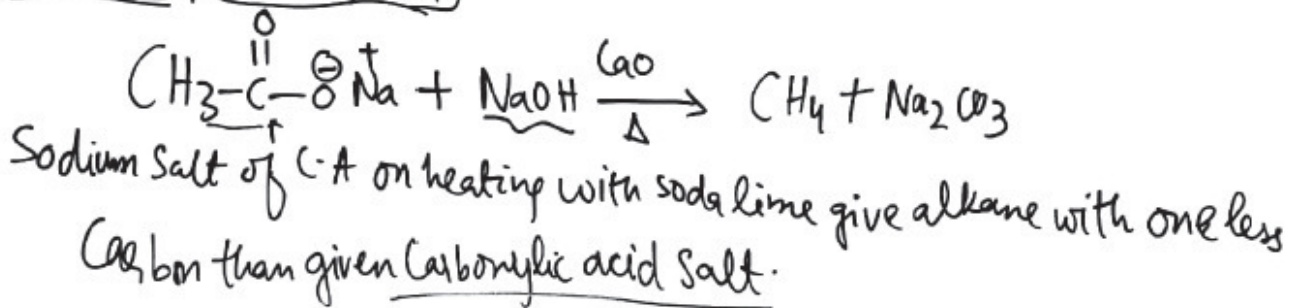 O
||
CH3-C-O⊖Na+ + NaOH CaO→Δ CH4 + Na2CO3
Sodium Salt of C-A on heating with soda lime give alkane with one less
Carbon than given Carbonylic acid Salt.